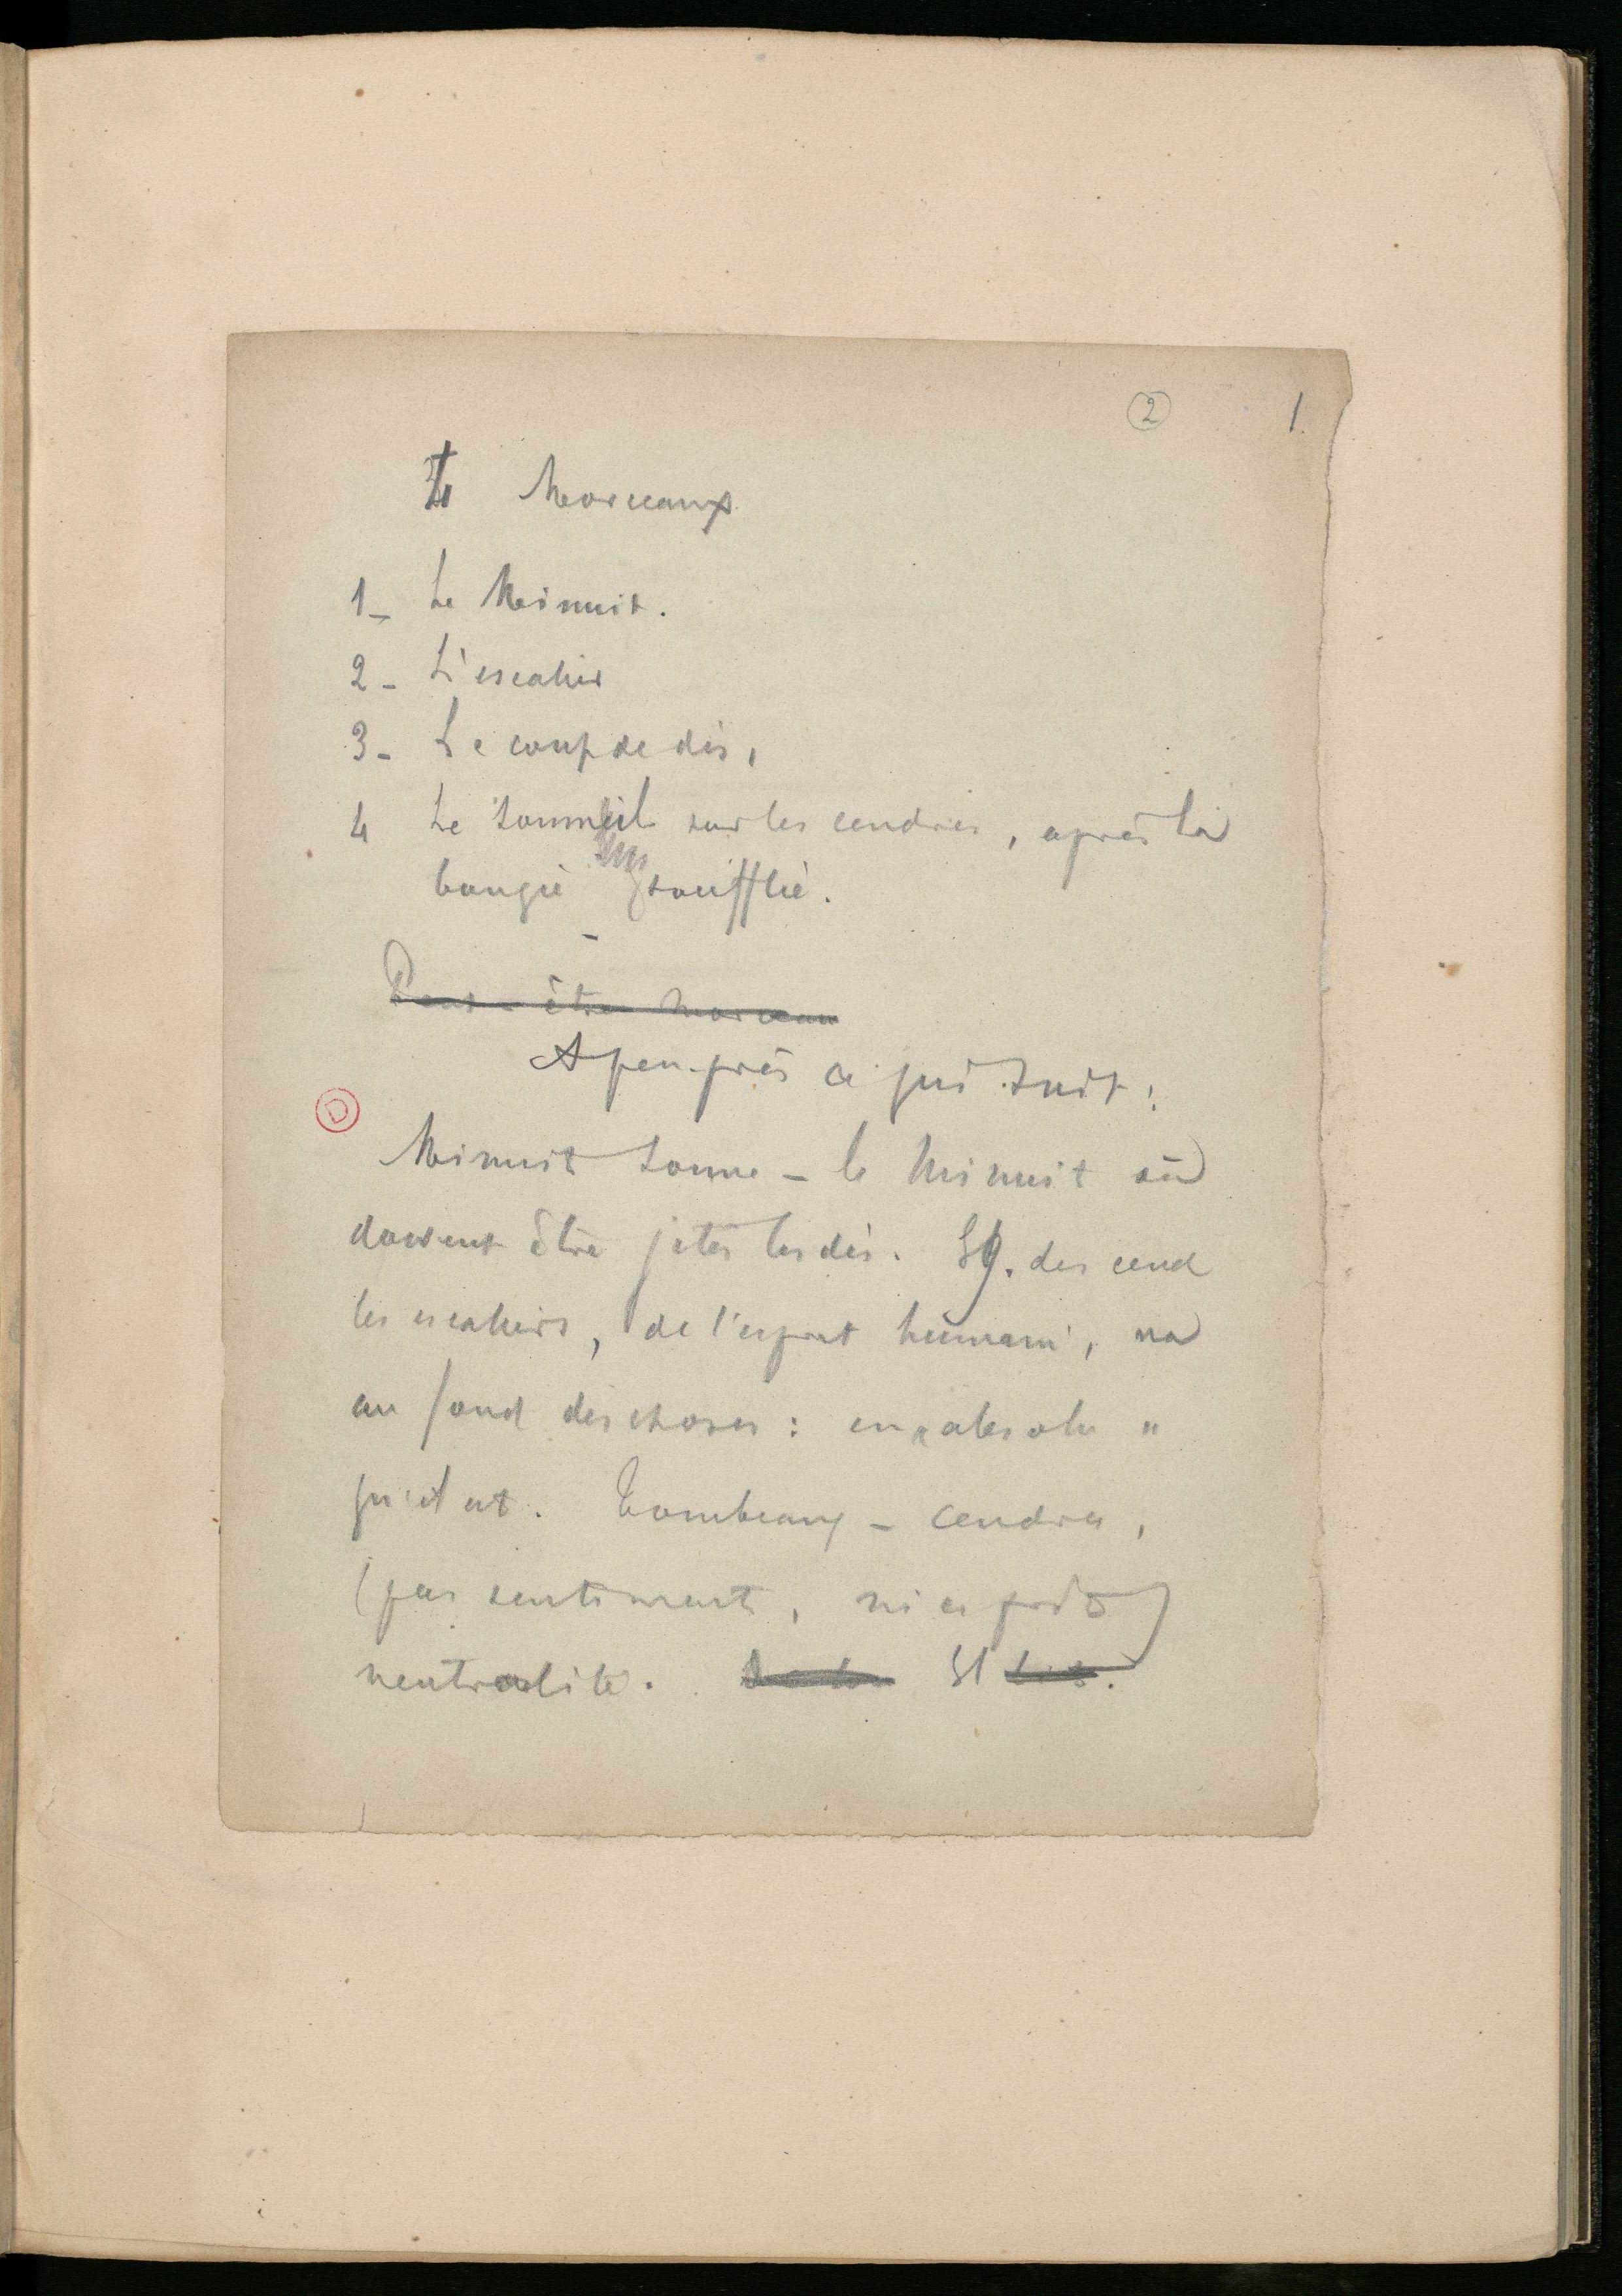 2 1.
4 Morceaux
1_ Le Minuit.
2_ L'escalier
3_ Le coup de dés,
4 Le Sommeil sur les cendres, après la
bougie soufflée.
Peut-être morceau
A peu près ce qui suit :
D
Minuit sonne – le Minuit où
doivent être jetés les dés. Ig. descend
les escaliers, de l'esprit humain, va
au fond des choses : en "absolu"
qu'il est. Tombeaux – cendres,
(pas sentiment, ni esprit)
neutralité. Il